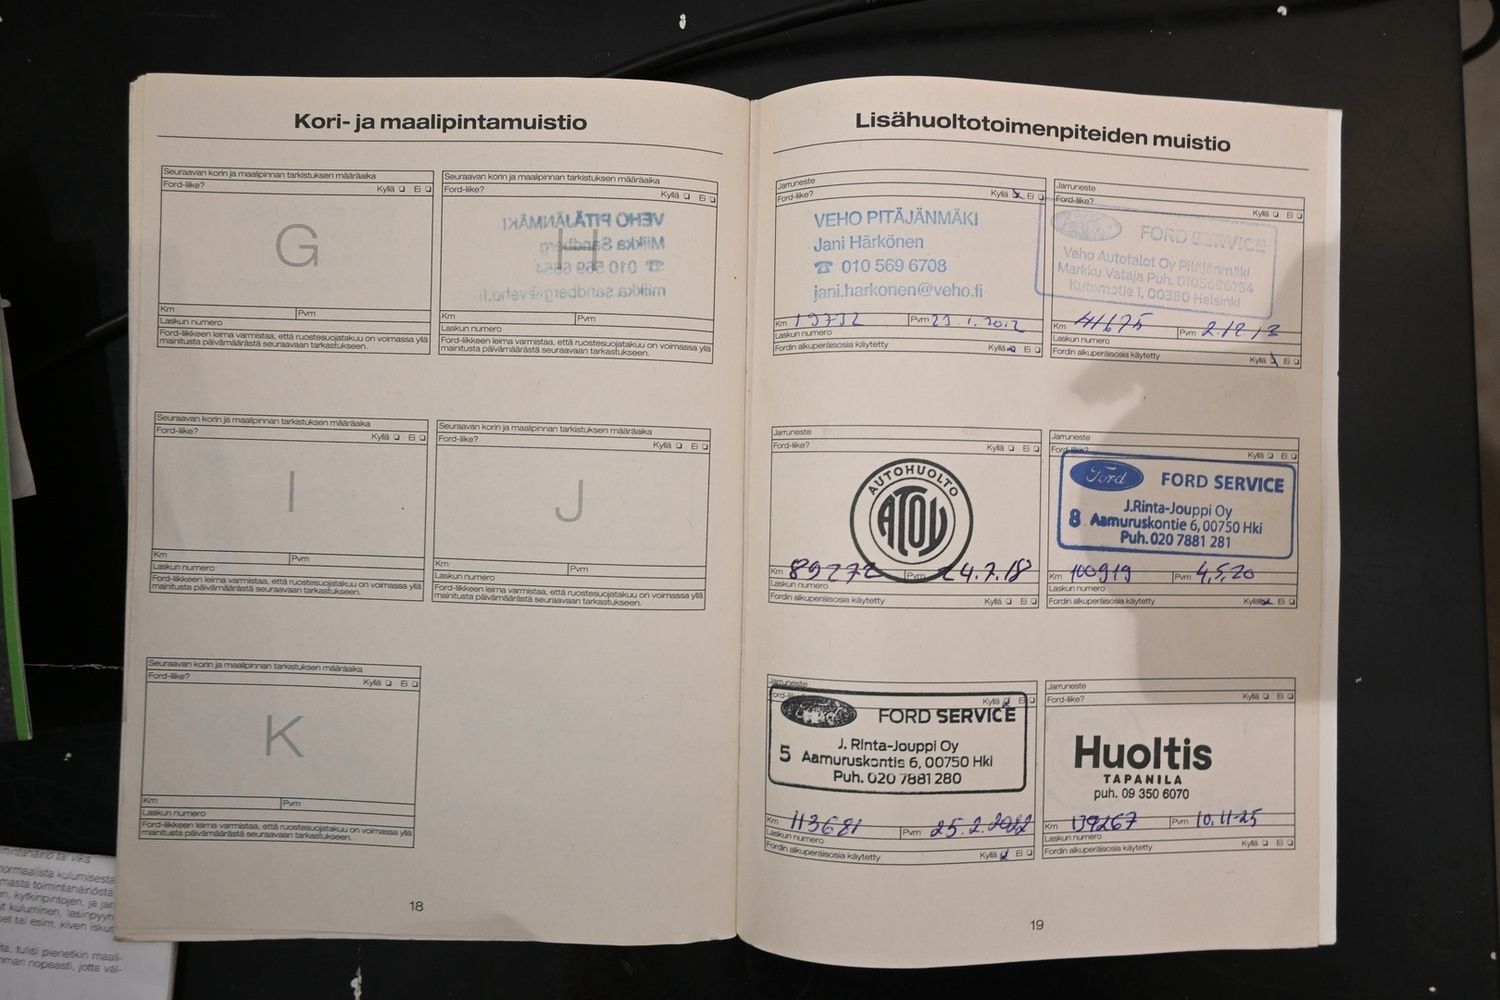 Kori- ja maalipintamuistio
Seuraavan korin ja maalipinnan tarkistuksen määräaika
Ford-liike? Kyllä ❏ Ei ❏
G
Km Pvm
Laskun numero
Ford-liikkeen leima varmistaa, että ruostesuojatakuu on voimassa yllä
mainitusta päivämäärästä seuraavaan tarkastukseen.
Seuraavan korin ja maalipinnan tarkistuksen määräaika
Ford-liike? Kyllä ❏ Ei ❏
H
VEHO PITÄJÄNMÄKI
Miikka Sandberg
☎ 010 569 6854
miikka.sandberg@veho.fi
Km Pvm
Laskun numero
Ford-liikkeen leima varmistaa, että ruostesuojatakuu on voimassa yllä
mainitusta päivämäärästä seuraavaan tarkastukseen.
Seuraavan korin ja maalipinnan tarkistuksen määräaika
Ford-liike? Kyllä ❏ Ei ❏
I
Km Pvm
Laskun numero
Ford-liikkeen leima varmistaa, että ruostesuojatakuu on voimassa yllä
mainitusta päivämäärästä seuraavaan tarkastukseen.
Seuraavan korin ja maalipinnan tarkistuksen määräaika
Ford-liike? Kyllä ❏ Ei ❏
J
Km Pvm
Laskun numero
Ford-liikkeen leima varmistaa, että ruostesuojatakuu on voimassa yllä
mainitusta päivämäärästä seuraavaan tarkastukseen.
Seuraavan korin ja maalipinnan tarkistuksen määräaika
Ford-liike? Kyllä ❏ Ei ❏
K
Km Pvm
Laskun numero
Ford-liikkeen leima varmistaa, että ruostesuojatakuu on voimassa yllä
mainitusta päivämäärästä seuraavaan tarkastukseen.
18
Lisähuoltotoimenpiteiden muistio
Jarruneste
Ford-liike? Kyllä ❏ Ei ❏
VEHO PITÄJÄNMÄKI
Jani Härkönen
☎ 010 569 6708
jani.harkonen@veho.fi
Km 19732 Pvm 23.1.2012
Laskun numero
Fordin alkuperäisosia käytetty Kyllä ❏ Ei ❏
Jarruneste
Ford-liike? Kyllä ❏ Ei ❏
FORD SERVICE
Veho Autotalot Oy Pitäjänmäki
Markku Vataja Puh. 0105696754
Kutomotie 1, 00380 Helsinki
Km 41675 Pvm
Laskun numero
Fordin alkuperäisosia käytetty Kyllä ❏ Ei ❏
Jarruneste
Ford-liike? Kyllä ❏ Ei ❏
AUTOHUOLTO
ATOY
Km 89272 Pvm 24.7.18
Laskun numero
Fordin alkuperäisosia käytetty Kyllä ❏ Ei ❏
Jarruneste
Ford-liike? Kyllä ❏ Ei ❏
Ford FORD SERVICE
J.Rinta-Jouppi Oy
8 Aamuruskontie 6, 00750 Hki
Puh. 020 7881 281
Km 100919 Pvm 4,5,20
Laskun numero
Fordin alkuperäisosia käytetty Kyllä ❏ Ei ❏
Jarruneste
Ford-liike? Kyllä ❏ Ei ❏
FORD SERVICE
J. Rinta-Jouppi Oy
5 Aamuruskontie 6, 00750 Hki
Puh. 020 7881 280
Km 113681 Pvm 25.2.2022
Laskun numero
Fordin alkuperäisosia käytetty Kyllä ❏ Ei ❏
Jarruneste
Ford-liike? Kyllä ❏ Ei ❏
Huoltis
TAPANILA
puh. 09 350 6070
Km 139267 Pvm 10.11-25
Laskun numero
Fordin alkuperäisosia käytetty Kyllä ❏ Ei ❏
19
tai vika.
normaalista kulumisesta
toimintahäiriöstä
kytkinpintojen, ja
kuluminen,
tai esim. kiven
tulisi pienetkin
nopeasti, jotta